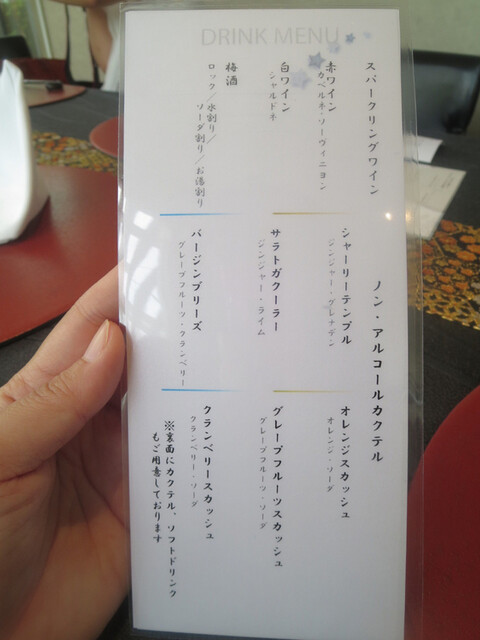 DRINK MENU
スパークリングワイン
赤ワイン
カベルネ・ソーヴィニヨン
白ワイン
シャルドネ
梅酒
ロック/水割り/
ソーダ割り/お湯割り
ノン・アルコールカクテル
シャーリーテンプル
ジンジャー・グレナデン
サラトガクーラー
ジンジャー・ライム
バージンブリーズ
グレープフルーツ・クランベリー
オレンジスカッシュ
オレンジ・ソーダ
グレープフルーツスカッシュ
グレープフルーツ・ソーダ
クランベリースカッシュ
クランベリー・ソーダ
※裏面にカクテル、ソフトドリンク
もご用意しております